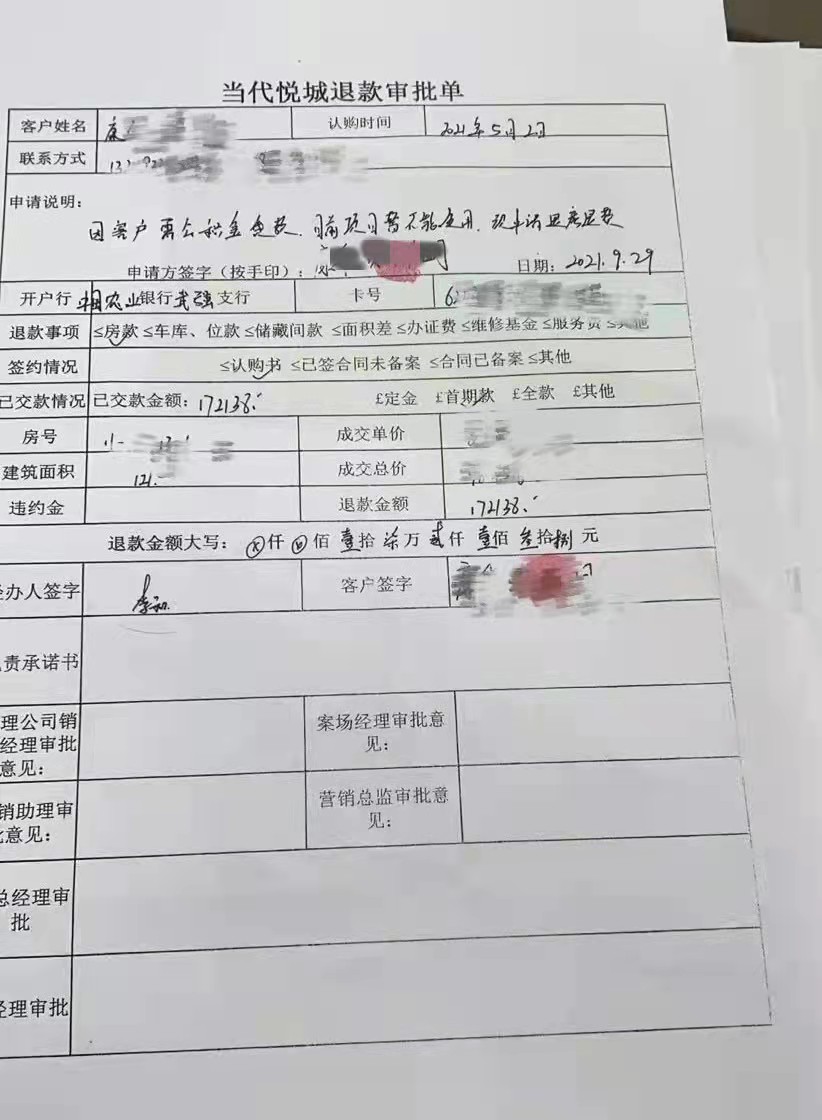 当代悦城退款审批单
客户姓名 康 认购时间 2021年5月2日
联系方式
申请说明:
因客户要公积金贷款,目前项目暂不能使用,现申请退房退款
申请方签字(按手印): 日期: 2021.9.29
开户行 中国农业银行武强支行 卡号 62
退款事项 ≤房款 ≤车库、位款 ≤储藏间款 ≤面积差 ≤办证费 ≤维修基金 ≤服务费 ≤其他
签约情况 ≤认购书 ≤已签合同未备案 ≤合同已备案 ≤其他
已交款情况 已交款金额: 172138. £定金 £首期款 £全款 £其他
房号 11- 成交单价
建筑面积 121. 成交总价
违约金 退款金额 172138.
退款金额大写: ⊗仟 ⊗佰 壹拾 柒万 贰仟 壹佰 叁拾捌元
经办人签字 客户签字
责承诺书
理公司销
经理审批
意见: 案场经理审批意
见:
销助理审
批意见: 营销总监审批意
见:
总经理审
批
经理审批